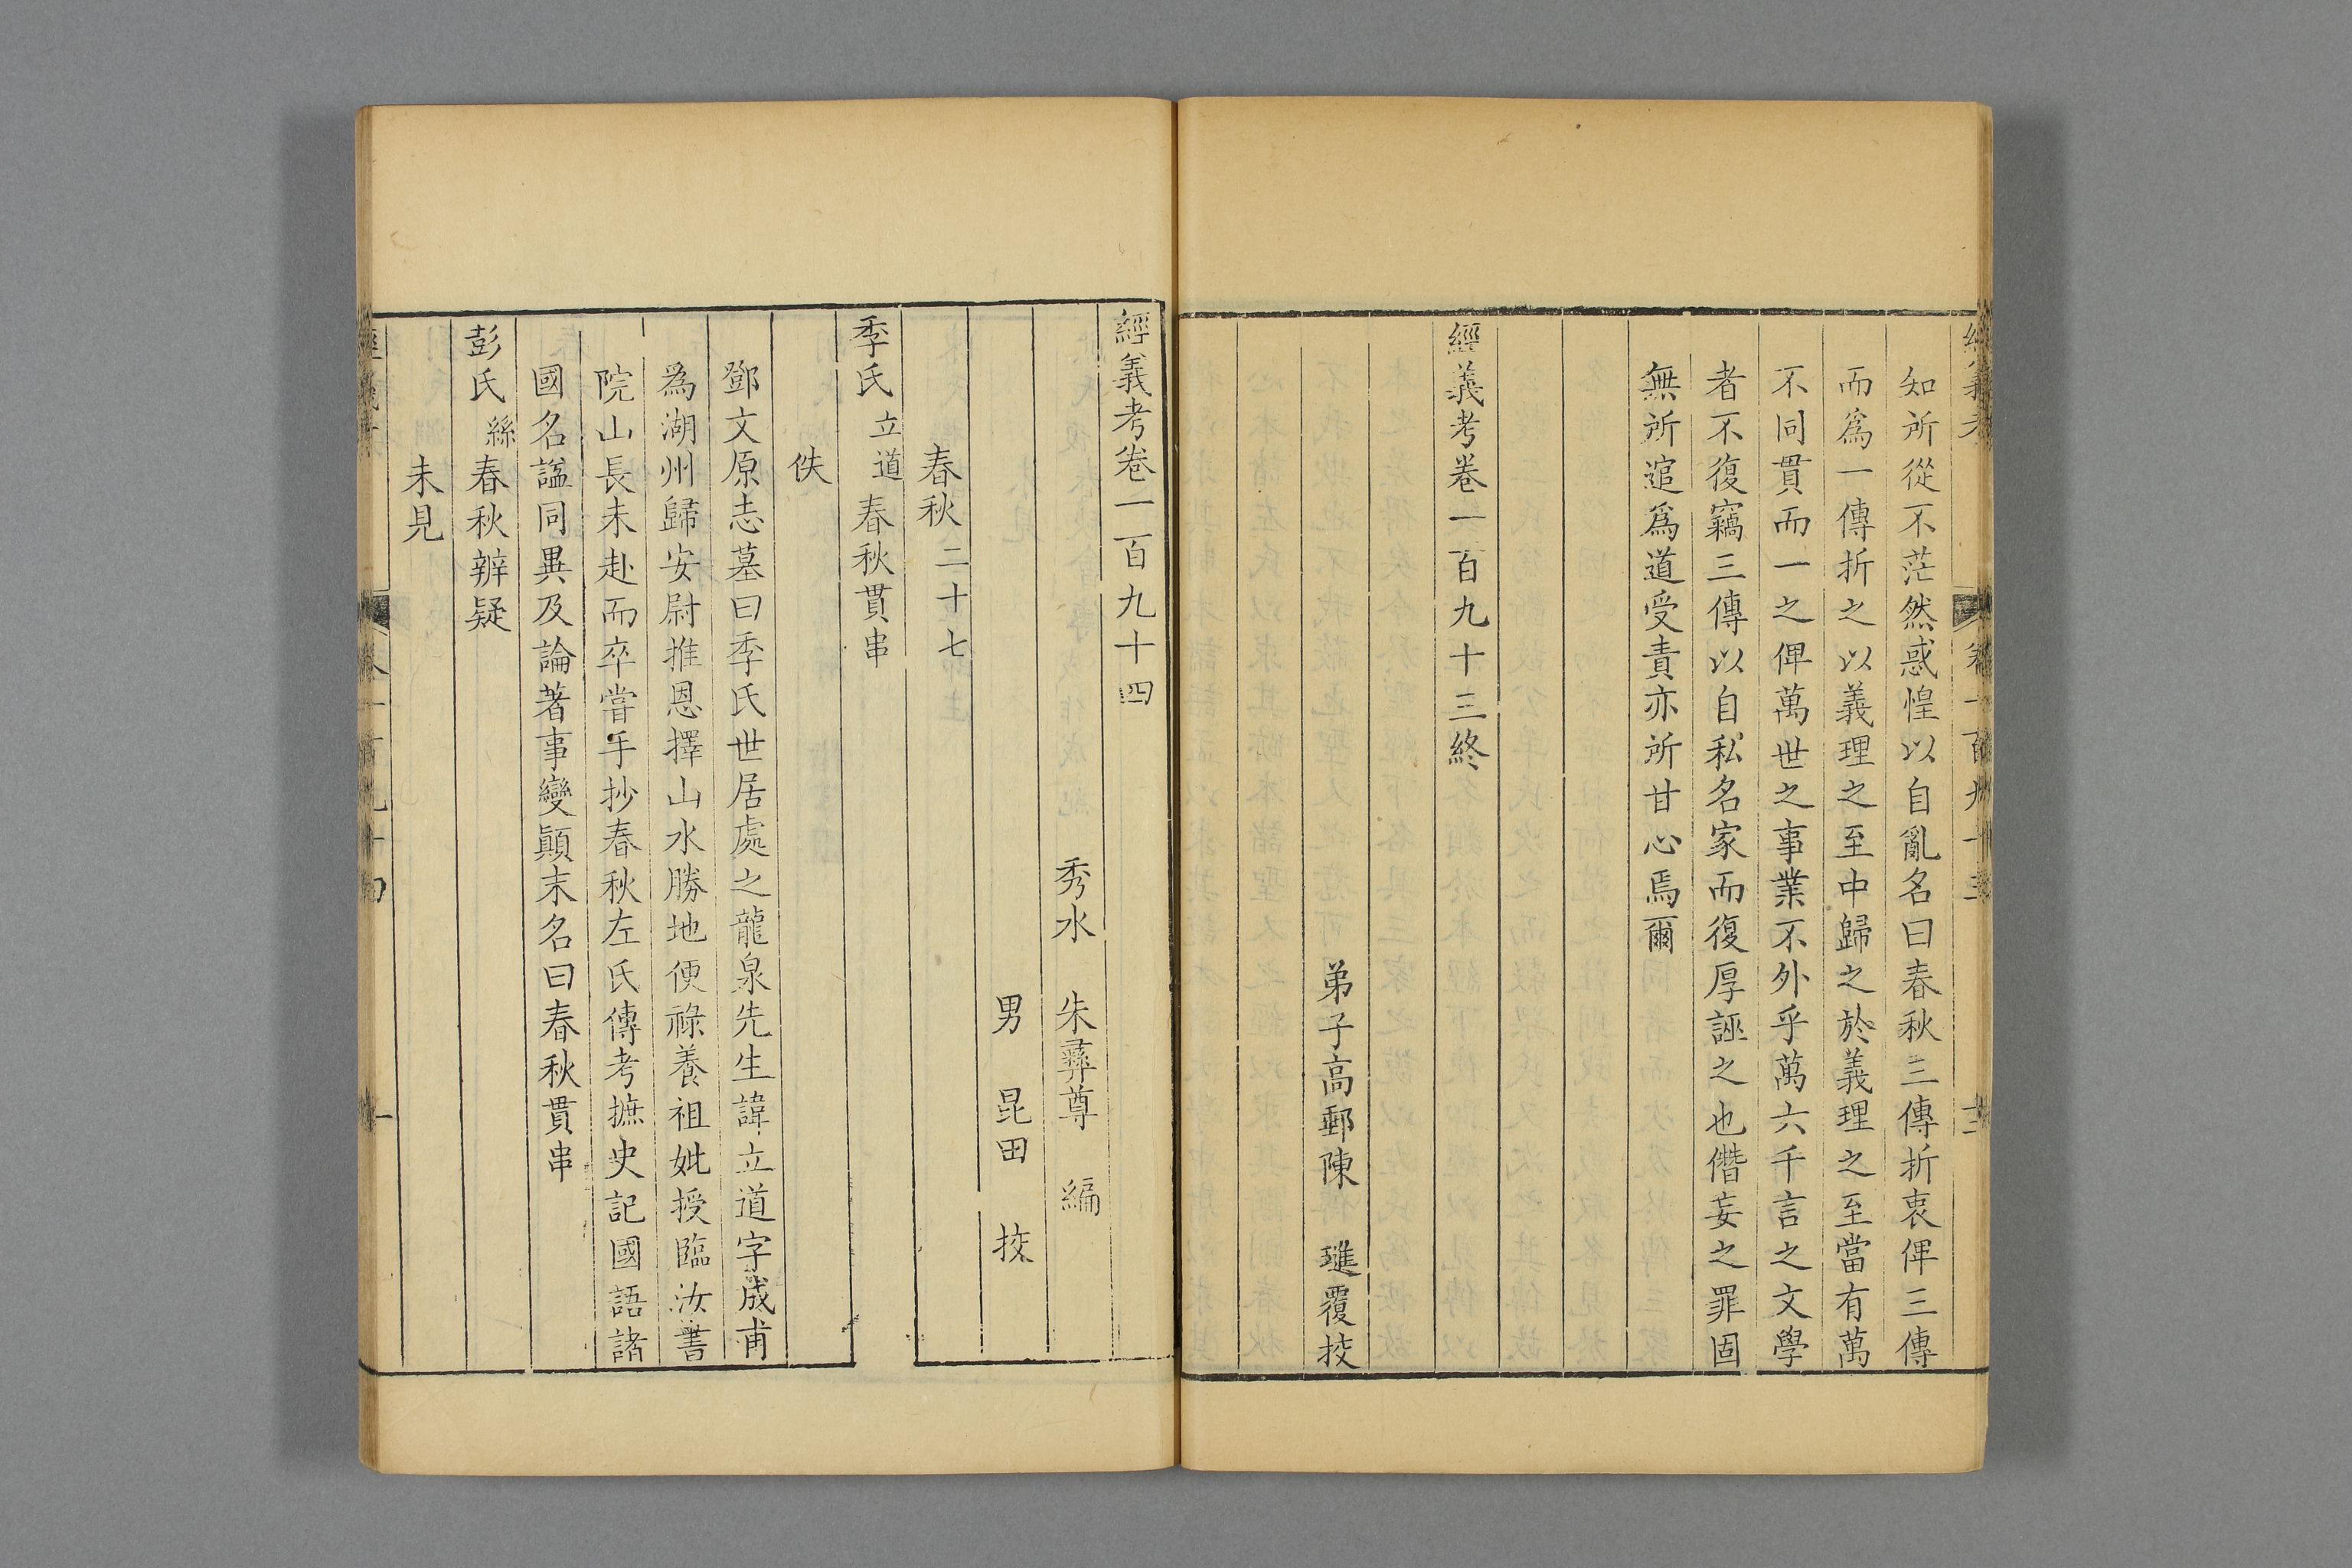 知所從不茫然惑惶以自亂名曰春秋三傳折衷俾三傳
而爲一傳折之以義理之至中歸之於義理之至當有萬
不同貫而一之俾萬世之事業不外乎萬六千言之文學
者不復竊三傳以自私名家而復厚誣之也僭妄之罪固
無所逭爲道受責亦所甘心焉爾
經義考卷一百九十三終
弟子高郵陳 璡覆挍
經義考卷一百九十四
秀水 朱彝尊 編
男 昆田 挍
春秋二十七
季氏立道春秋貫串
佚
鄧文原志墓曰季氏世居處之龍泉先生諱立道字成甫
爲湖州歸安尉推恩擇山水勝地便祿養祖妣授臨汝書
院山長未赴而卒嘗手抄春秋左氏傳考摭史記國語諸
國名諡同異及論著事變顛末名曰春秋貫串
彭氏絲春秋辨疑
未見